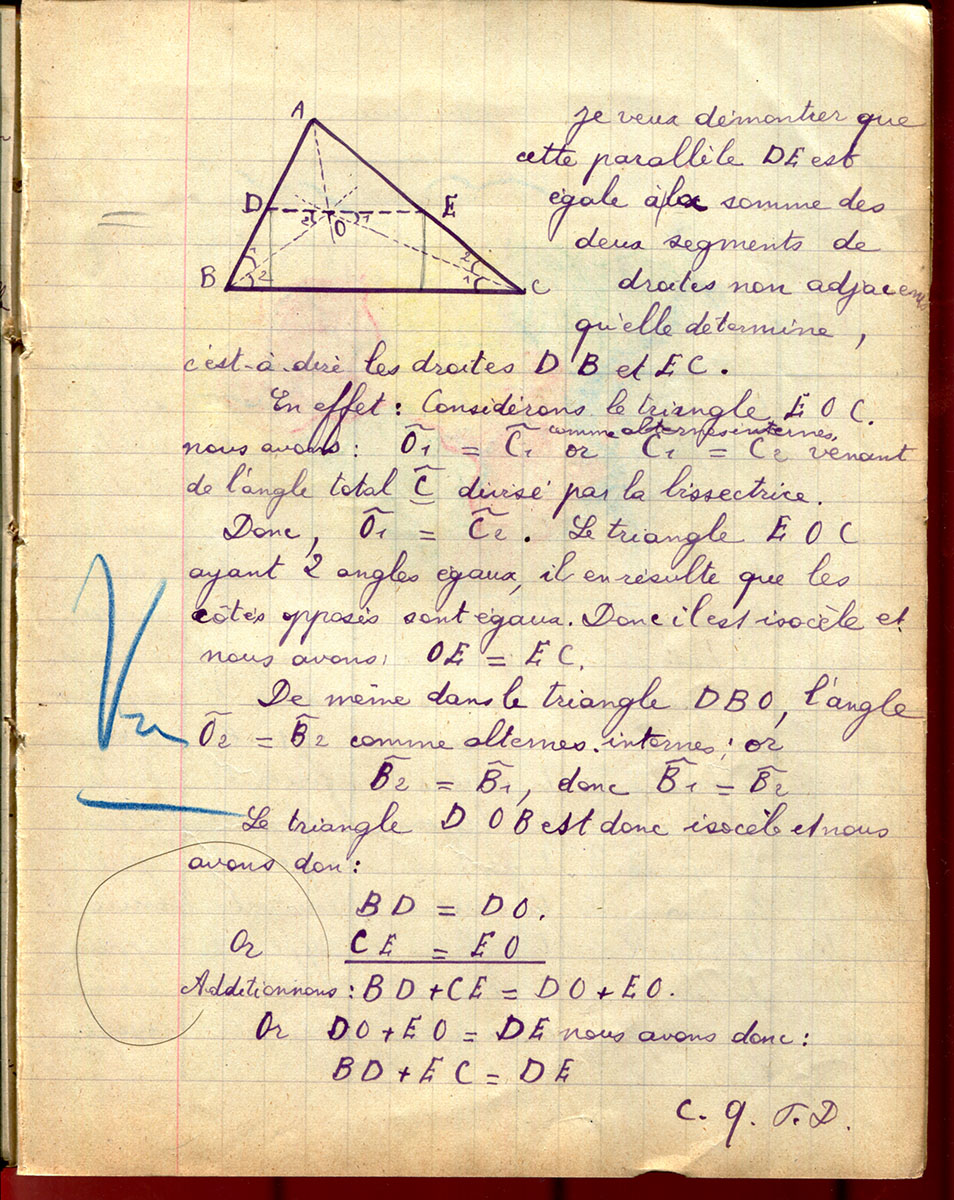 A
D
E
2
O
1
B
1
2
2
1
C
je veux démontrer que
cette parallèle DE est
égale à la somme des
deux segments de
droites non adjacents
qu'elle détermine,
c'est-à-dire les droites DB et EC.
En effet : Considérons le triangle EOC.
comme alternes internes,
nous avons : Ô1 = Ĉ1 or Ĉ1 = Ĉ2 venant
de l'angle total Ĉ divisé par la bissectrice.
Donc, Ô1 = Ĉ2. Le triangle EOC
ayant 2 angles égaux, il en résulte que les
côtés opposés sont égaux. Donc il est isocèle et
nous avons : OE = EC.
De même dans le triangle DBO, l'angle
Ô2 = B̂2 comme alternes-internes ; or
B̂2 = B̂1, donc B̂1 = B̂2
Le triangle DOB est donc isocèle et nous
avons don :
BD = DO.
Or CE = EO
Additionnons : BD + CE = DO + EO.
Or DO + EO = DE nous avons donc :
BD + EC = DE
C. q. F. D.
Vu